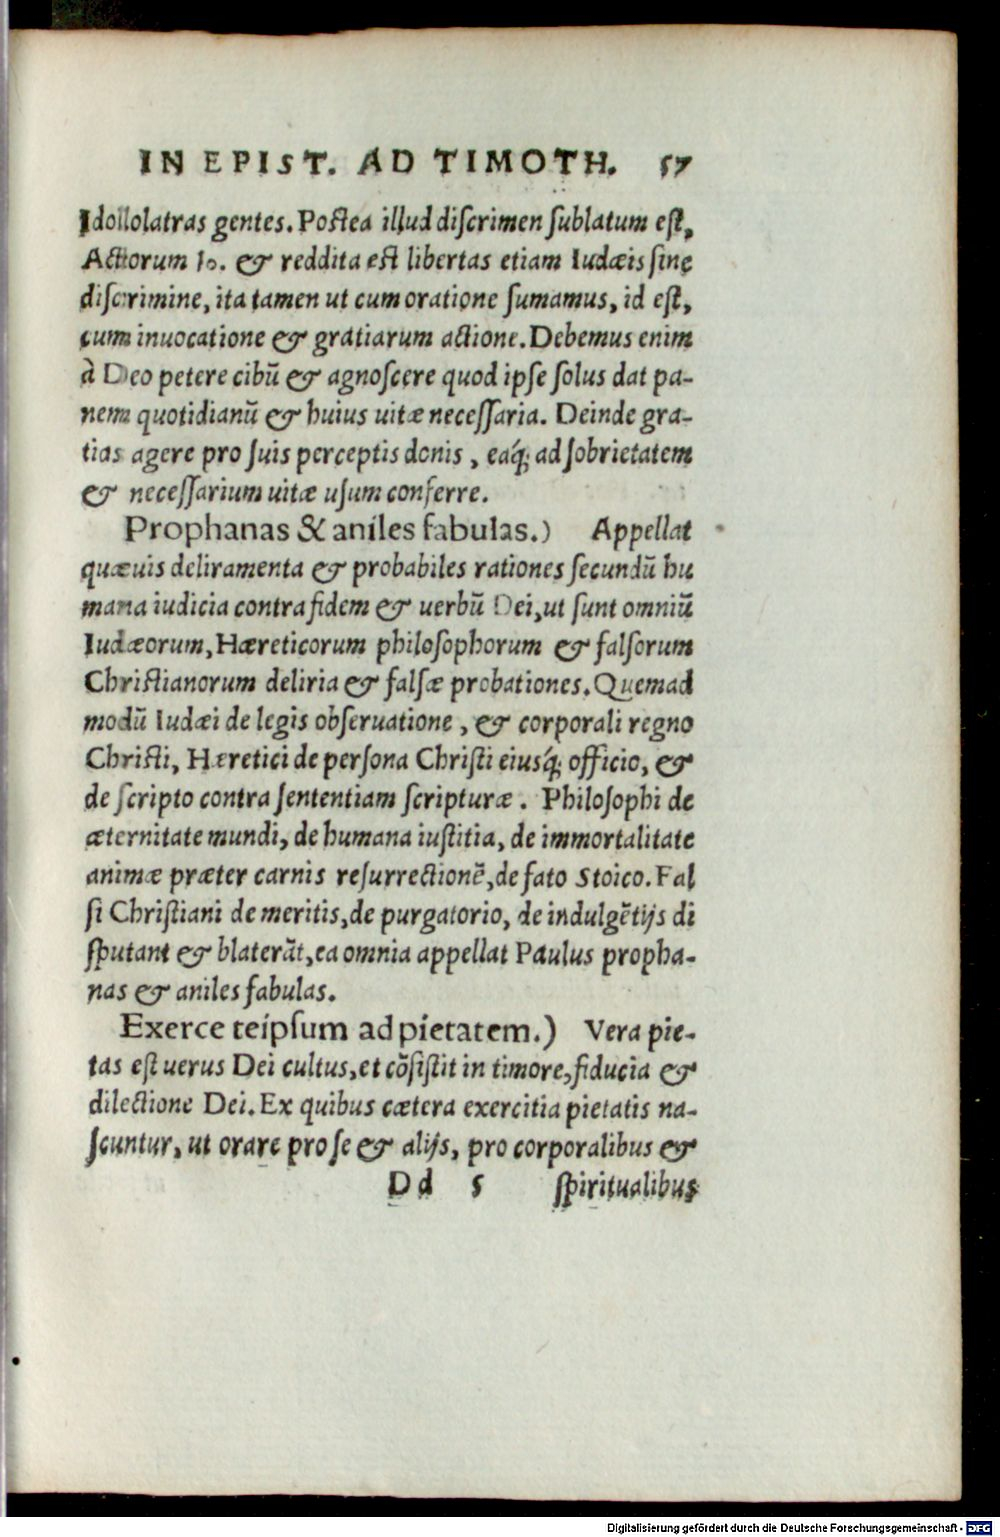 IN EPIST. AD TIMOTH. 57
Idollolatras gentes. Postea illud discrimen sublatum est,
Actiorum 10. & reddita est libertas etiam Iudæis sine
discrimine, ita tamen ut cum oratione sumamus, id est,
cum inuocatione & gratiarum actione. Debemus enim
à Deo petere cibū & agnoscere quod ipse solus dat pa-
nem quotidianū & huius uitæ necessaria. Deinde gra-
tias agere pro suis perceptis donis, eaq́; ad sobrietatem
& necessarium uitæ usum conferre.
Prophanas & aniles fabulas.) Appellat
quæuis deliramenta & probabiles rationes secundū hu
mana iudicia contra fidem & uerbū Dei, ut sunt omniū
Iudæorum, Hæreticorum philosophorum & falsorum
Christianorum deliria & falsæ probationes. Quemad
modū Iudæi de legis obseruatione, & corporali regno
Christi, Hæretici de persona Christi eiusq́; officio, &
de scripto contra sententiam scripturæ. Philosophi de
æternitate mundi, de humana iustitia, de immortalitate
animæ præter carnis resurrectionē, de fato Stoico. Fal
si Christiani de meritis, de purgatorio, de indulgētijs di
sputant & blaterāt, ea omnia appellat Paulus propha-
nas & aniles fabulas.
Exerce teipsum ad pietatem.) Vera pie-
tas est uerus Dei cultus, et cōsistit in timore, fiducia &
dilectione Dei. Ex quibus cætera exercitia pietatis na-
scuntur, ut orare pro se & alijs, pro corporalibus &
Dd 5 spiritualibus
Digitalisierung gefördert durch die Deutsche Forschungsgemeinschaft - DFG